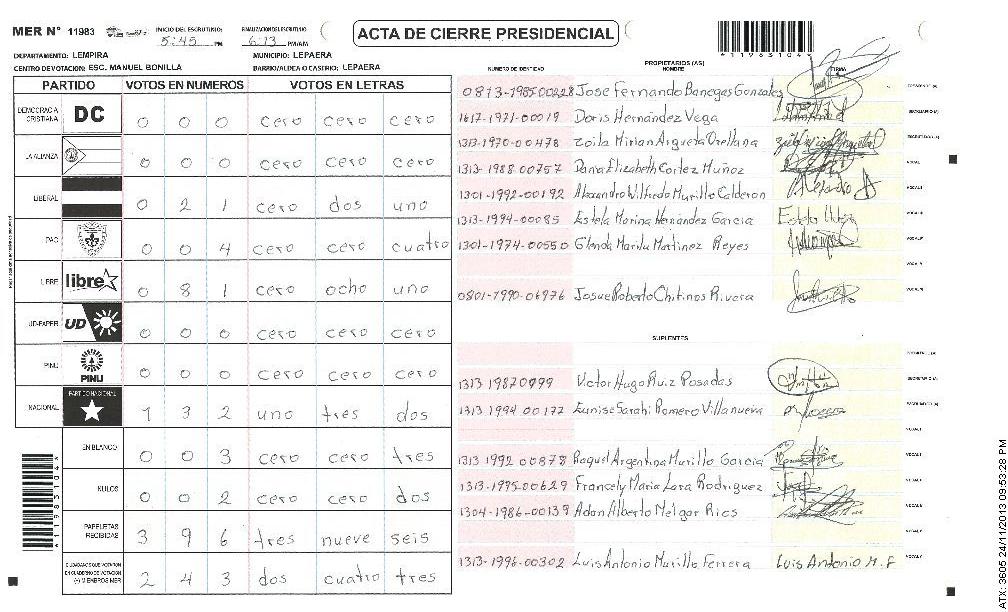 MER Nº 11983
INICIO DEL ESCRUTINIO:
5:45 PM
FINALIZACION DEL ESCRUTINIO
6:13 PM/AM
ACTA DE CIERRE PRESIDENCIAL
DEPARTAMENTO: LEMPIRA
MUNICIPIO: LEPAERA
CENTRO DE VOTACION: ESC. MANUEL BONILLA
BARRIO/ALDEA O CASERIO: LEPAERA
PARTIDO VOTOS EN NUMEROS VOTOS EN LETRAS
DEMOCRACIA CRISTIANA DC 0 0 0 cero cero cero
LA ALIANZA 0 0 0 cero cero cero
LIBERAL 0 2 1 cero dos uno
PAC 0 0 4 cero cero cuatro
LIBRE libre 0 8 1 cero ocho uno
UD-FAPER UD 0 0 0 cero cero cero
PINU PINU 0 0 0 cero cero cero
NACIONAL PARTIDO NACIONAL 1 3 2 uno tres dos
EN BLANCO 0 0 3 cero cero tres
NULOS 0 0 2 cero cero dos
PAPELETAS RECIBIDAS 3 9 6 tres nueve seis
CIUDADANOS QUE VOTARON EN CUADERNO DE VOTACION (+) MIEMBROS MER 2 4 3 dos cuatro tres
*11983104*
PROPIETARIOS (AS)
NUMERO DE IDENTIDAD NOMBRE FIRMA
0813-1985-00228 Jose Fernando Banegas Gonzales PRESIDENTE (A)
1617-1971-00019 Doris Hernández Vega SECRETARIO (A)
1313-1970-00478 Zoila Mirian Argueta Orellana ESCRUTADOR (A)
1313-1988-00757 Dania Elizabeth Cortez Muñoz VOCAL I
1301-1992-00192 Alexandro Wilfredo Murillo Calderon
1313-1994-00085 Estela Marina Hernández Garcia
1301-1974-00550 Glenda Marilu Martinez Reyes
0801-1990-06976 Josue Roberto Chitinos Rivera
SUPLENTES
1313 19870999 Victor Hugo Ruiz Posadas SECRETARIO (A)
1313 1994 00177 Eunise Sarahi Romero Villanueva ESCRUTADOR (A)
1313 1992 00878 Raquel Argentina Murillo Garcia
1313-1995-00629 Francely Maria Lara Rodriguez
1304-1986-00139 Adan Alberto Melgar Rios
1313-1996-00302 Luis Antonio Murillo Ferrera Luis Antonio M. F
ATX: 3605 24/11/2013 09:53:28 PM